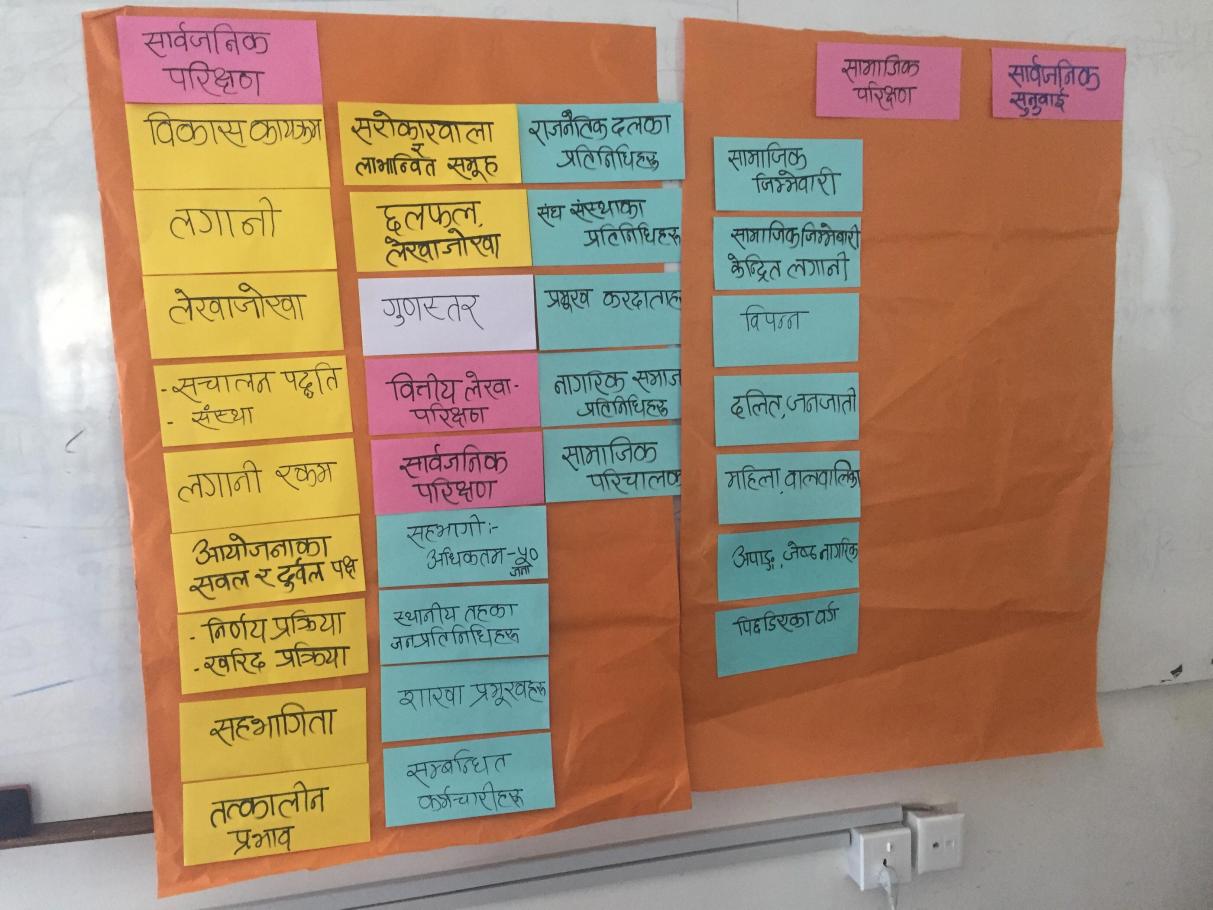 सार्वजनिक
परिक्षण
विकास कार्यक्रम
लगानी
लेखाजोखा
- सचालन पद्धति
- संस्था
लगानी रकम
आयोजनाका
सवल र दुर्वल पक्ष
- निर्णय प्रक्रिया
- खरिद प्रक्रिया
सहभागिता
तत्कालीन
प्रभाव
सरोकारवाला
र
लाभान्वित समूह
छलफल,
लेखाजोखा
गुणस्तर
वित्तीय लेखा-
परिक्षण
सार्वजनिक
परिक्षण
सहभागी:-
अधिकतम-५०
जना
स्थानीय तहका
जनप्रतिनिधिहरु
शाखा प्रमूखहरु
सम्बन्धित
कर्मचारीहरु
राजनैतिक दलका
प्रतिनिधिहरु
संघ संस्थाका
प्रतिनिधिहरु
प्रमूख करदाताहरु
नागरिक समाज
प्रतिनिधिहरु
सामाजिक
परिचालक
सामाजिक
परिक्षण
सार्वजनिक
सुनुवाई
सामाजिक
जिम्मेवारी
सामाजिक जिम्मेवारी
केन्द्रित लगानी
विपन्न
दलित, जनजाती
महिला, वालवालिका
अपाङ्ग, जेष्ठ नागरिक
पिछडिएका वर्ग